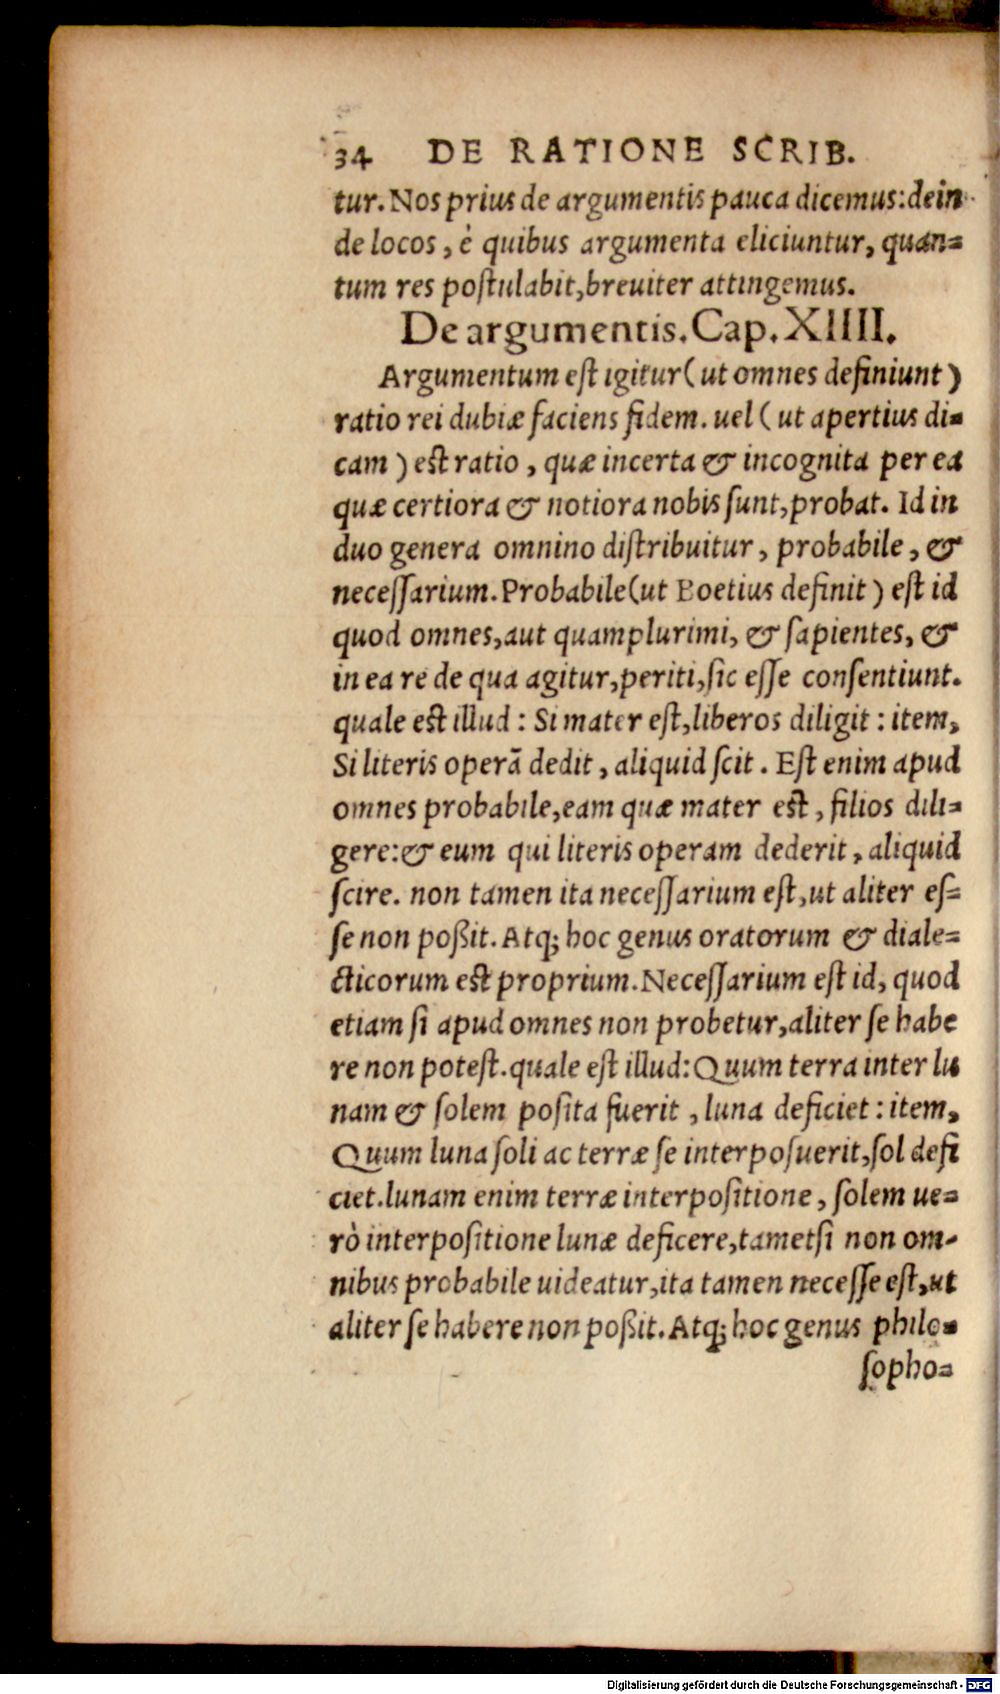 34 DE RATIONE SCRIB.
tur. Nos prius de argumentis pauca dicemus: dein
de locos, è quibus argumenta eliciuntur, quan=
tum res postulabit, breuiter attingemus.
De argumentis. Cap. XIIII.
Argumentum est igitur (ut omnes definiunt)
ratio rei dubiæ faciens fidem. uel (ut apertius di=
cam) est ratio, quæ incerta & incognita per ea
quæ certiora & notiora nobis sunt, probat. Id in
duo genera omnino distribuitur, probabile, &
necessarium. Probabile (ut Boetius definit) est id
quod omnes, aut quamplurimi, & sapientes, &
in ea re de qua agitur, periti, sic esse consentiunt.
quale est illud: Si mater est, liberos diligit: item,
Si literis operã dedit, aliquid scit. Est enim apud
omnes probabile, eam quæ mater est, filios dili=
gere: & eum qui literis operam dederit, aliquid
scire. non tamen ita necessarium est, ut aliter es=
se non poßit. Atq; hoc genus oratorum & diale=
cticorum est proprium. Necessarium est id, quod
etiam si apud omnes non probetur, aliter se habe
re non potest. quale est illud: Quum terra inter lu
nam & solem posita fuerit, luna deficiet: item,
Quum luna soli ac terræ se interposuerit, sol defi
ciet. lunam enim terræ interpositione, solem ue=
rò interpositione lunæ deficere, tametsi non om-
nibus probabile uideatur, ita tamen necesse est, ut
aliter se habere non poßit. Atq; hoc genus philo=
sopho=
Digitalisierung gefördert durch die Deutsche Forschungsgemeinschaft - DFG